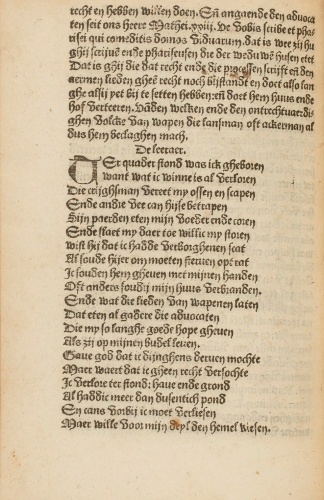 recht en hebben willen doen. En angaende den aduoca
ten seit ons heere Mathei.xxiij. Ve vobis scribe et pha
risei qui comeditis domos viduarum. dat is wee zij hu
ghij scriuen ende phariseusen die der weduwen husen etet
Dat is ghij die dat recht ende die processen scrijft en den
aermen lieden ghee recht noch bijstandt en doet also lan
ghe alsij yet bij te setten hebben: en doet hem huus ende
hof verteeren. Uanden welken ende den ontrechtuardi
ghen volcke van wapen die lansman oft ackerman al
dus hem beclaghen mach.
De leeraer.
TEr quader stond was ick gheboren
want wat ic winne is al verloren
Die crijghsman vereet my ossen en scapen
Ende andre vee can hijse betrapen
Sijn paerden eten mijn voeder ende coren
Ende slaet my daer toe willic my storen
wist hij dat ic hadde verborghenen scat
Al soude hijer om moeten steruen opt rat
Ic souden hem gheuen met mijnen handen
Oft anders soudij mijn huus verbranden.
Ende wat die lieden van wapenen laten
Dat eten al gadere die aduocaten
Die my so langhe goede hope gheuen
Als zij op mijnen budel leuen.
Gaue god dat ic dijnghens deruen mochte
Maer waert dat ic gheen recht versochte
Ic verlore ter stond: haue ende grond
Al haddic meer dan dusentich pond
En cans voorbij ic moet verliesen
Maer wille voor mijn deyl den hemel kiesen.